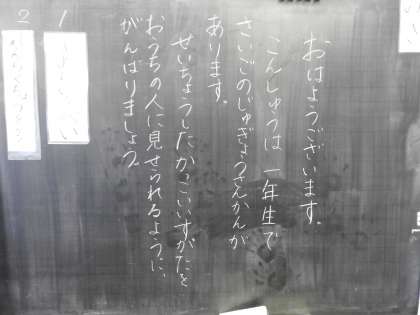 おはようございます。
こんしゅうは一年生で
さいごのじゅぎょうさんかんが
あります。
せいちょうしたかっこいいすがたを
おうちの人に見せられるように、
がんばりましょう。
1
2